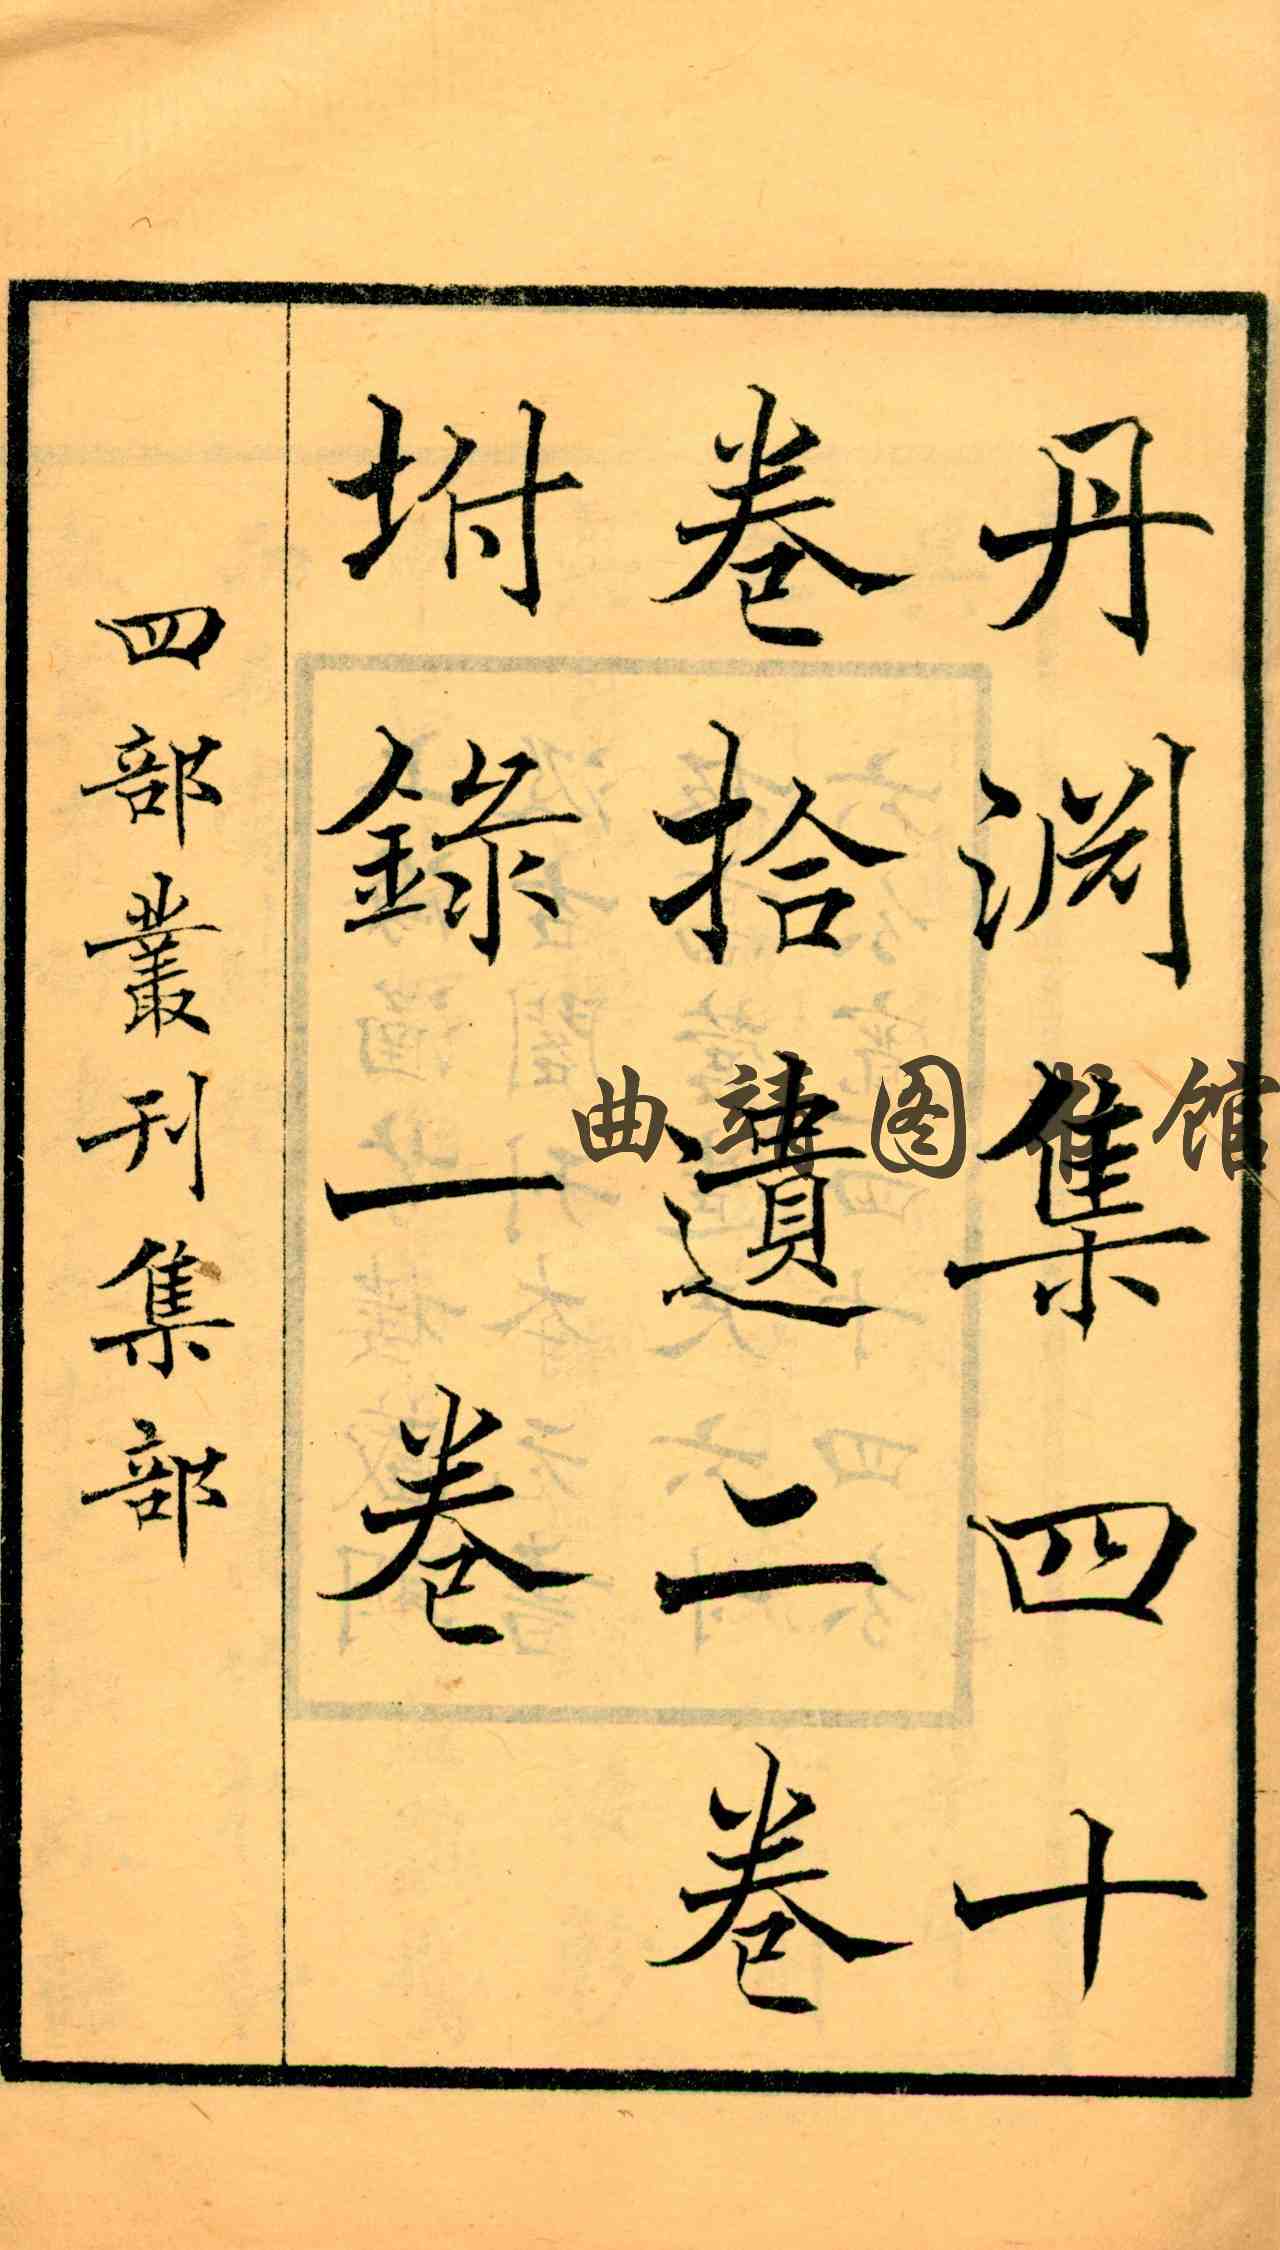 丹淵集四十
卷拾遺二卷
坿錄一卷
四部叢刊集部
曲靖图书馆